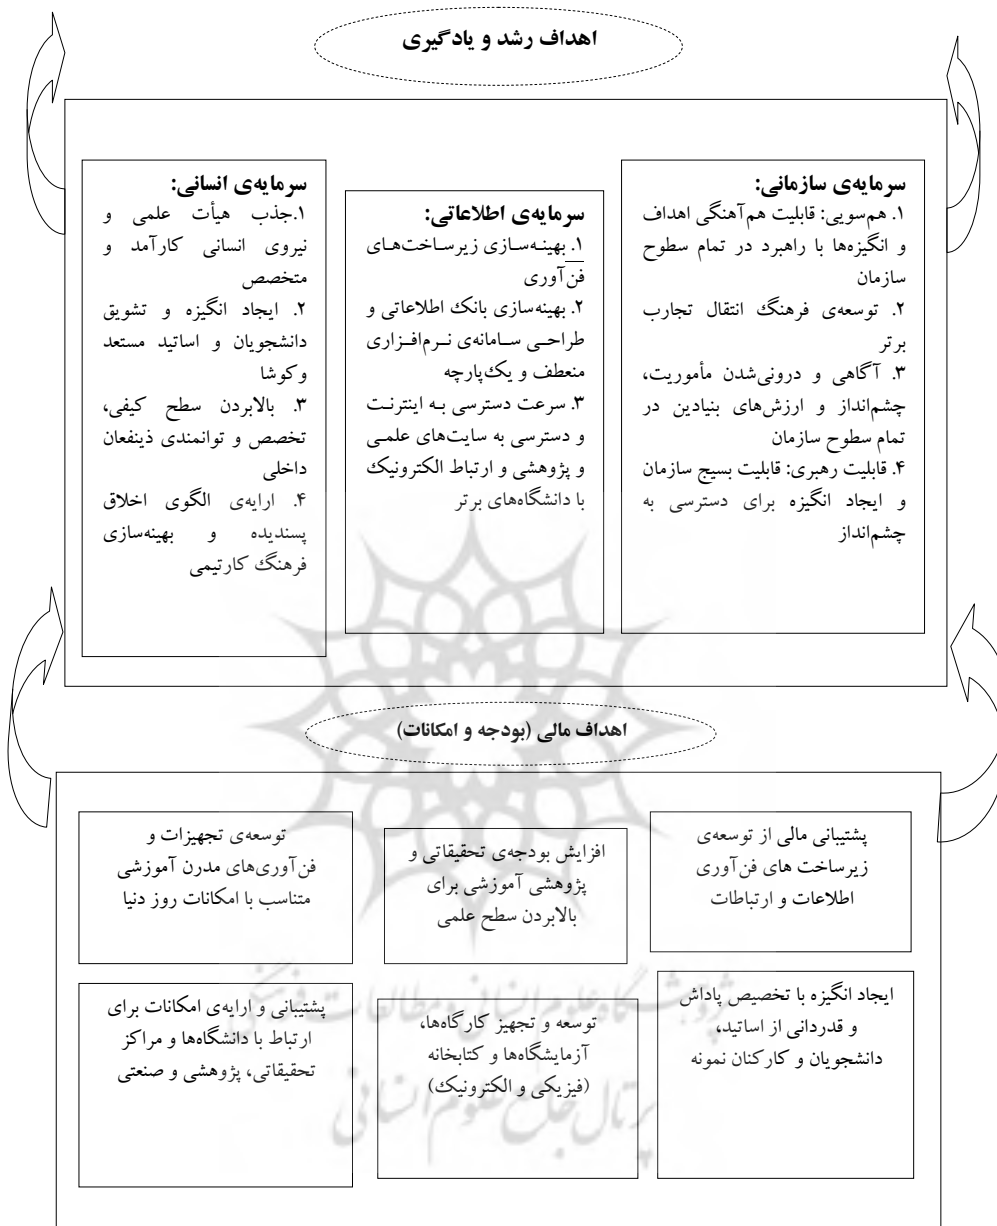 اهداف رشد و یادگیری
سرمایه‌ی سازمانی:
۱. هم‌سویی: قابلیت هم‌آهنگی اهداف
و انگیزه‌ها با راهبرد در تمام سطوح
سازمان
۲. توسعه‌ی فرهنگ انتقال تجارب
برتر
۳. آگاهی و درونی‌شدن مأموریت،
چشم‌انداز و ارزش‌های بنیادین در
تمام سطوح سازمان
۴. قابلیت رهبری: قابلیت بسیج سازمان
و ایجاد انگیزه برای دسترسی به
چشم‌انداز
سرمایه‌ی اطلاعاتی:
۱. بهینه‌سازی زیرساخت‌های
فن‌آوری
۲. بهینه‌سازی بانک اطلاعاتی و
طراحی سامانه‌ی نرم‌افزاری
منعطف و یک‌پارچه
۳. سرعت دسترسی به اینترنت
و دسترسی به سایت‌های علمی
و پژوهشی و ارتباط الکترونیک
با دانشگاه‌های برتر
سرمایه‌ی انسانی:
۱.جذب هیأت علمی و
نیروی انسانی کارآمد و
متخصص
۲. ایجاد انگیزه و تشویق
دانشجویان و اساتید مستعد
وکوشا
۳. بالابردن سطح کیفی،
تخصص و توانمندی ذینفعان
داخلی
۴. ارایه‌ی الگوی اخلاق
پسندیده و بهینه‌سازی
فرهنگ کارتیمی
اهداف مالی (بودجه و امکانات)
پشتیبانی مالی از توسعه‌ی
زیرساخت های فن‌آوری
اطلاعات و ارتباطات
افزایش بودجه‌ی تحقیقاتی و
پژوهشی آموزشی برای
بالابردن سطح علمی
توسعه‌ی تجهیزات و
فن‌آوری‌های مدرن آموزشی
متناسب با امکانات روز دنیا
ایجاد انگیزه با تخصیص پاداش
و قدردانی از اساتید،
دانشجویان و کارکنان نمونه
توسعه و تجهیز کارگاه‌ها،
آزمایشگاه‌ها و کتابخانه
(فیزیکی و الکترونیک)
پشتیبانی و ارایه‌ی امکانات برای
ارتباط با دانشگاه‌ها و مراکز
تحقیقاتی، پژوهشی و صنعتی
پژوهشگاه علوم انسانی و مطالعات فرهنگی
پرتال جامع علوم انسانی